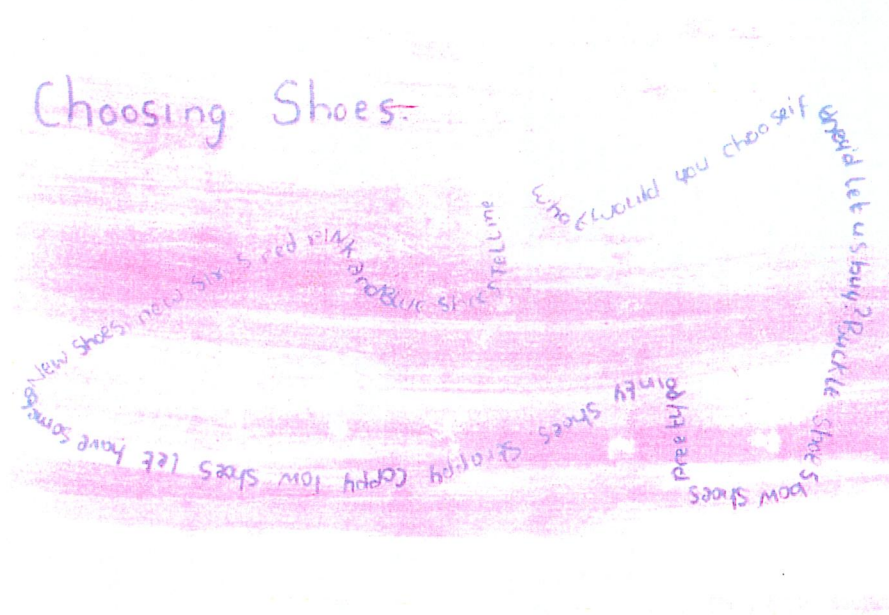 Choosing Shoes.
New shoes, new six s red pink and Blue shoes Tell me what would you choose if they'd let us buy? Buckle shoes bow shoes pree typo inty shoes strappy coppy low shoes let have some